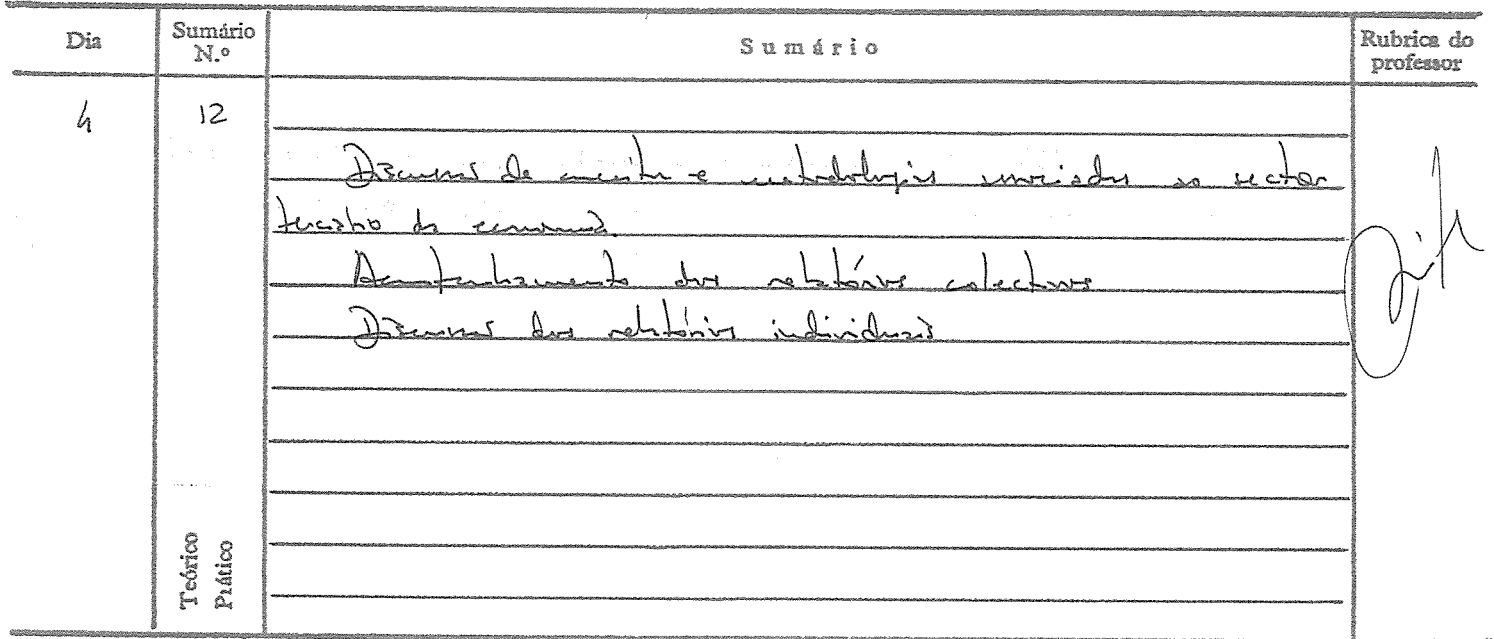 Dia
Sumário N.º
Sumário
Rubrica do professor
4
12
Discussão de conceitos e metodologias associadas ao sector
terciário da economia.
Acompanhamento dos relatórios colectivos
Discussão dos relatórios individuais
Teórico
Prático